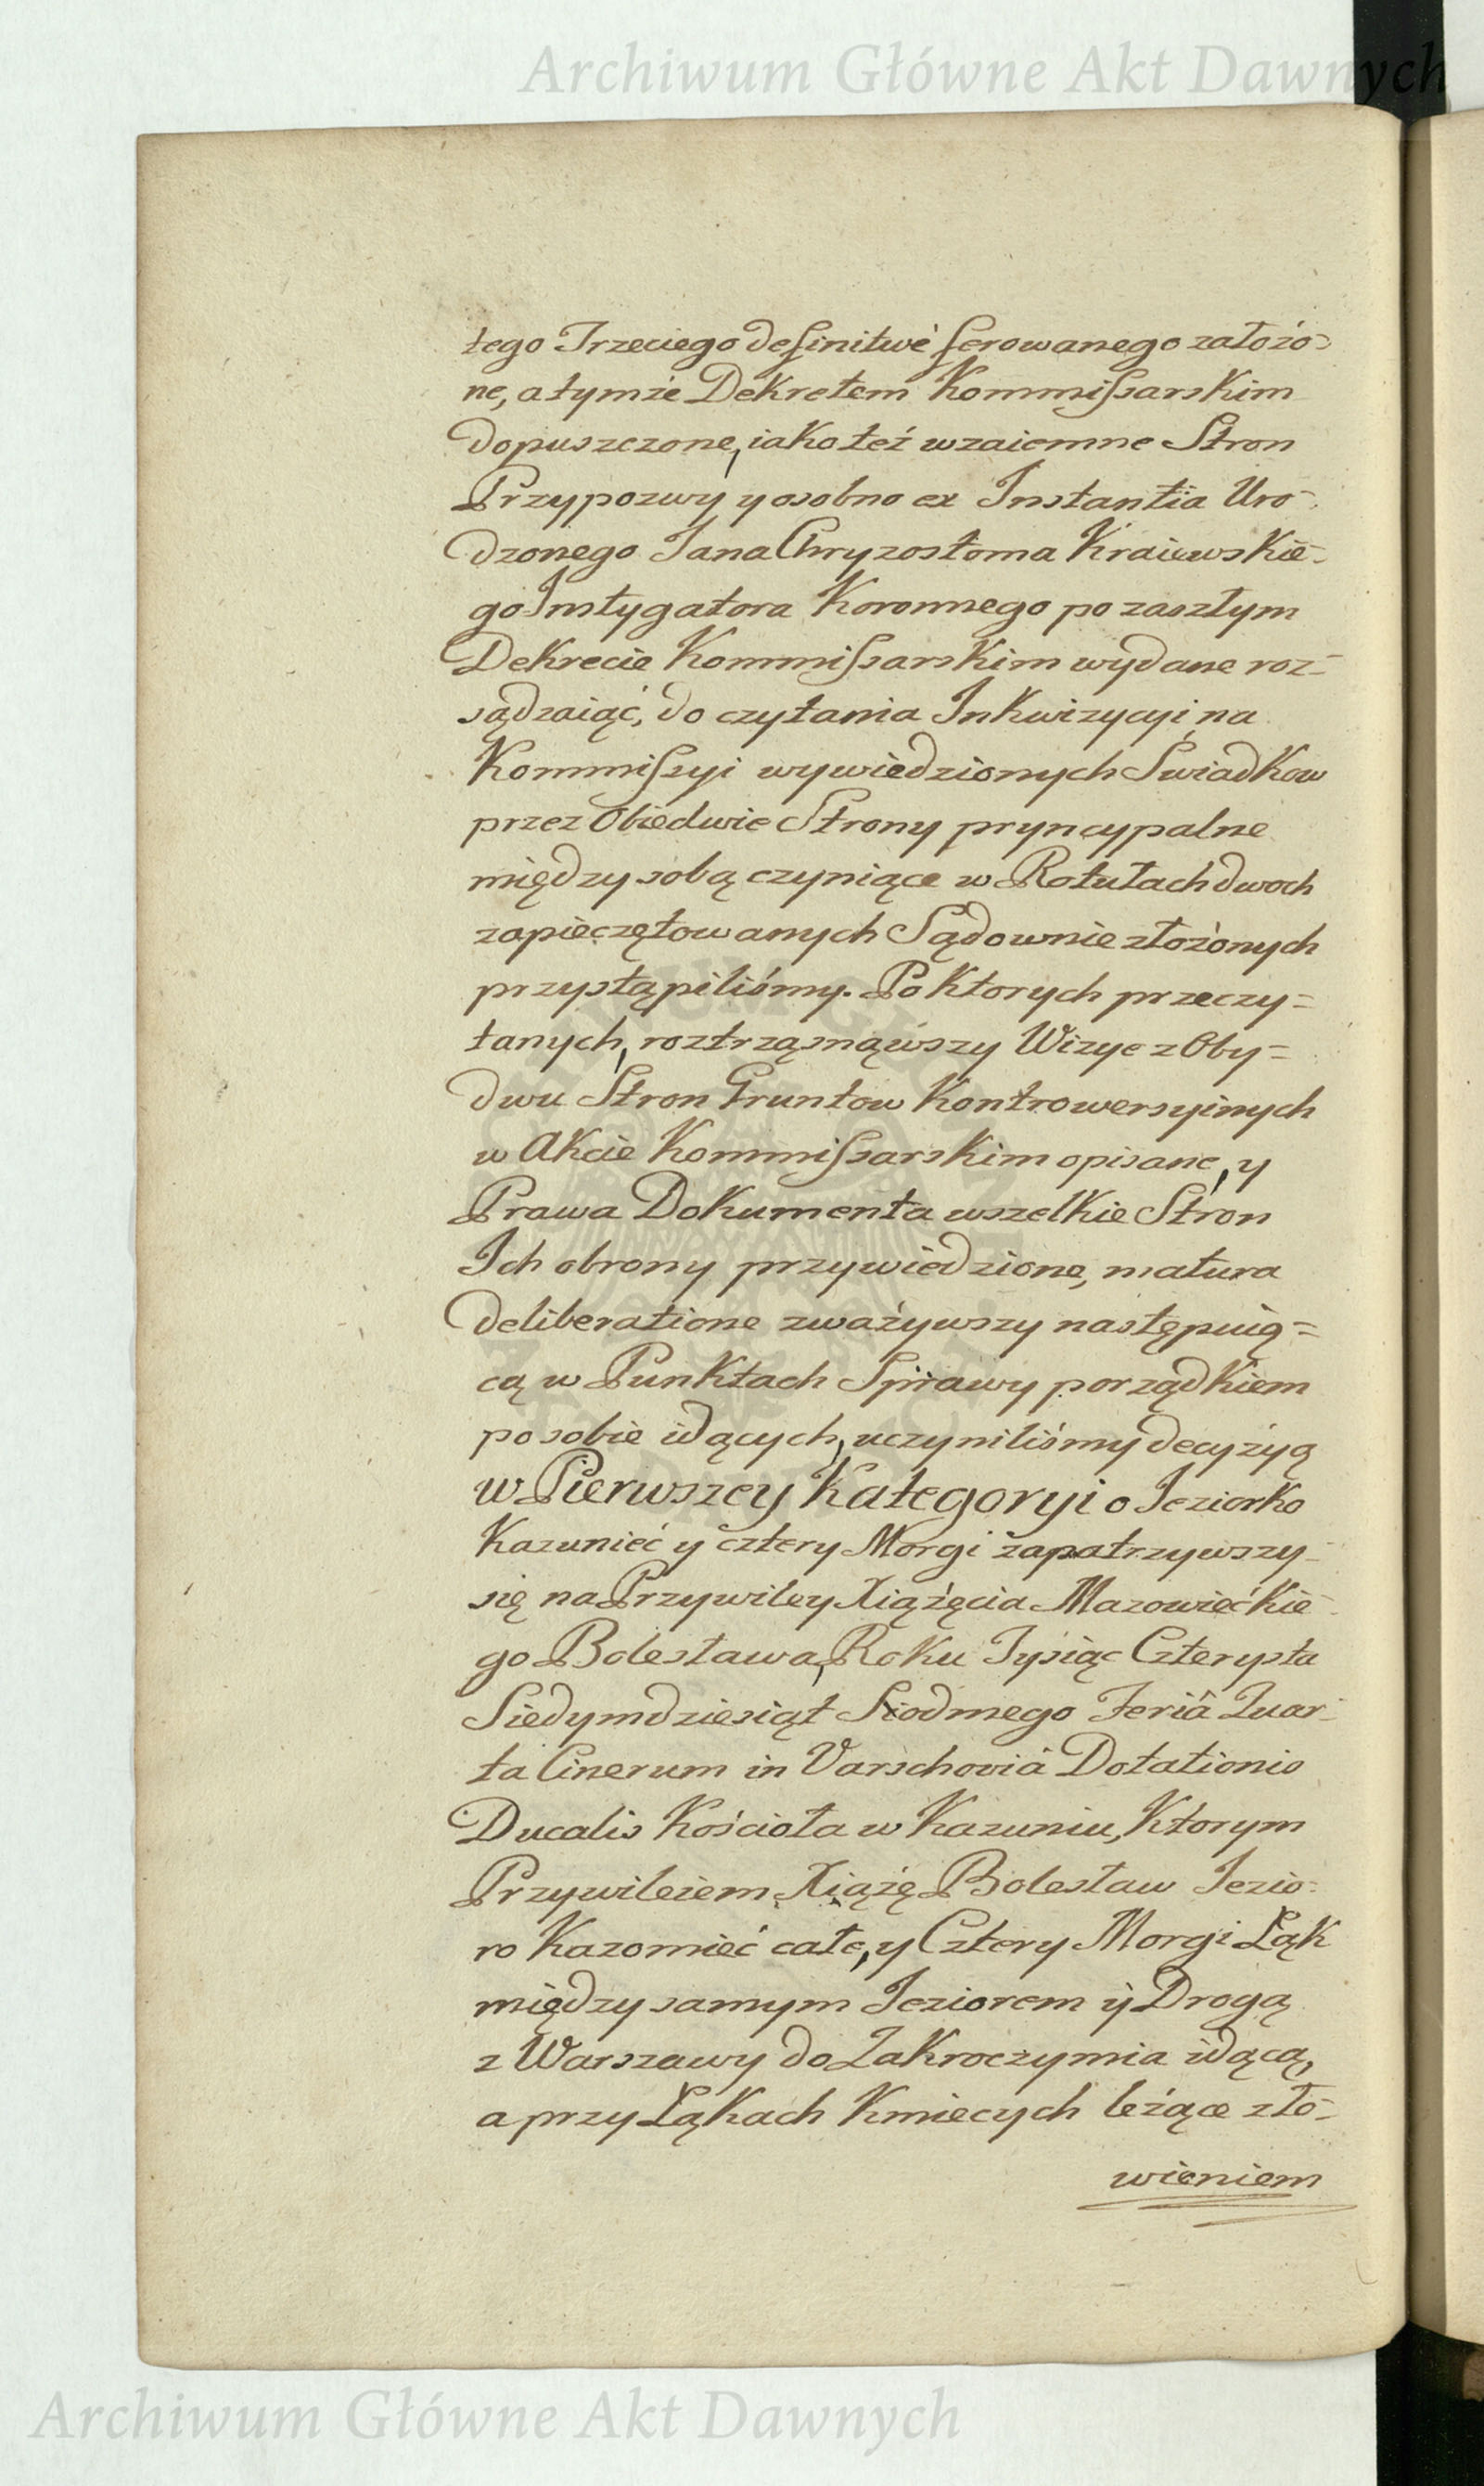 Archiwum Główne Akt Dawnych
tego Trzeciego definitwé ferowanego załóżo-
ne, a tymże Dekretem Kommissarskim
dopuszczone, iako też wzaiemne Stron
Przypozwy y osobno ex Instantia Uro-
dzonego Jana Chryzostoma Kraiewskie-
go Instygatora Koronnego po zaszłym
Dekrecie Kommissarskim wydane roz-
sądzaiąć, do czytania Inkwizycyi, na
Kommissyi wywiedzionych Swiadkow
przez Obiedwie Strony pryncypalne
między sobą czyniące w Rotułach dwoch
zapieczętowanych Sądownie złożonych
przystąpiliśmy. Po Ktorych przeczy=
tanych, roztrząsnąwszy Wizye z Oby=
dwu Stron Gruntow Kontrowersyinych
w Akcie Kommissarskim opisane, y
Prawa Dokumenta wszelkie Stron
Ich obrony przywiedzione, matura
deliberatione zważywszy następuią=
cą w Punktach Sprawy porządkiem
po sobie idących, uczyniliśmy decyżyą
w Pierwszey Kategoryi o Jeziorko
Kazunieć y cztery Morgi zapatrzywszy-
się na Przywiley Xiążęcia Mazowiećkie-
go Bolesława, Roku Tysiąc Czterysta
Siedymdziesiąt Siodmego Feriâ Quar-
ta Cinerum in Varschoviâ Dotationis
Ducalis Kościoła w Kazuniu, Ktorym
Przywileiem Xiążę Bolesław Jezio-
ro Kazomieć całe, y Cztery Morgi Łąk
między samym Jeziorem ÿ Drogą
z Warszawy do Zakroczymia idącą,
a przy Łąkach Kmiecych leżące zło-
wieniem
Archiwum Główne Akt Dawnych